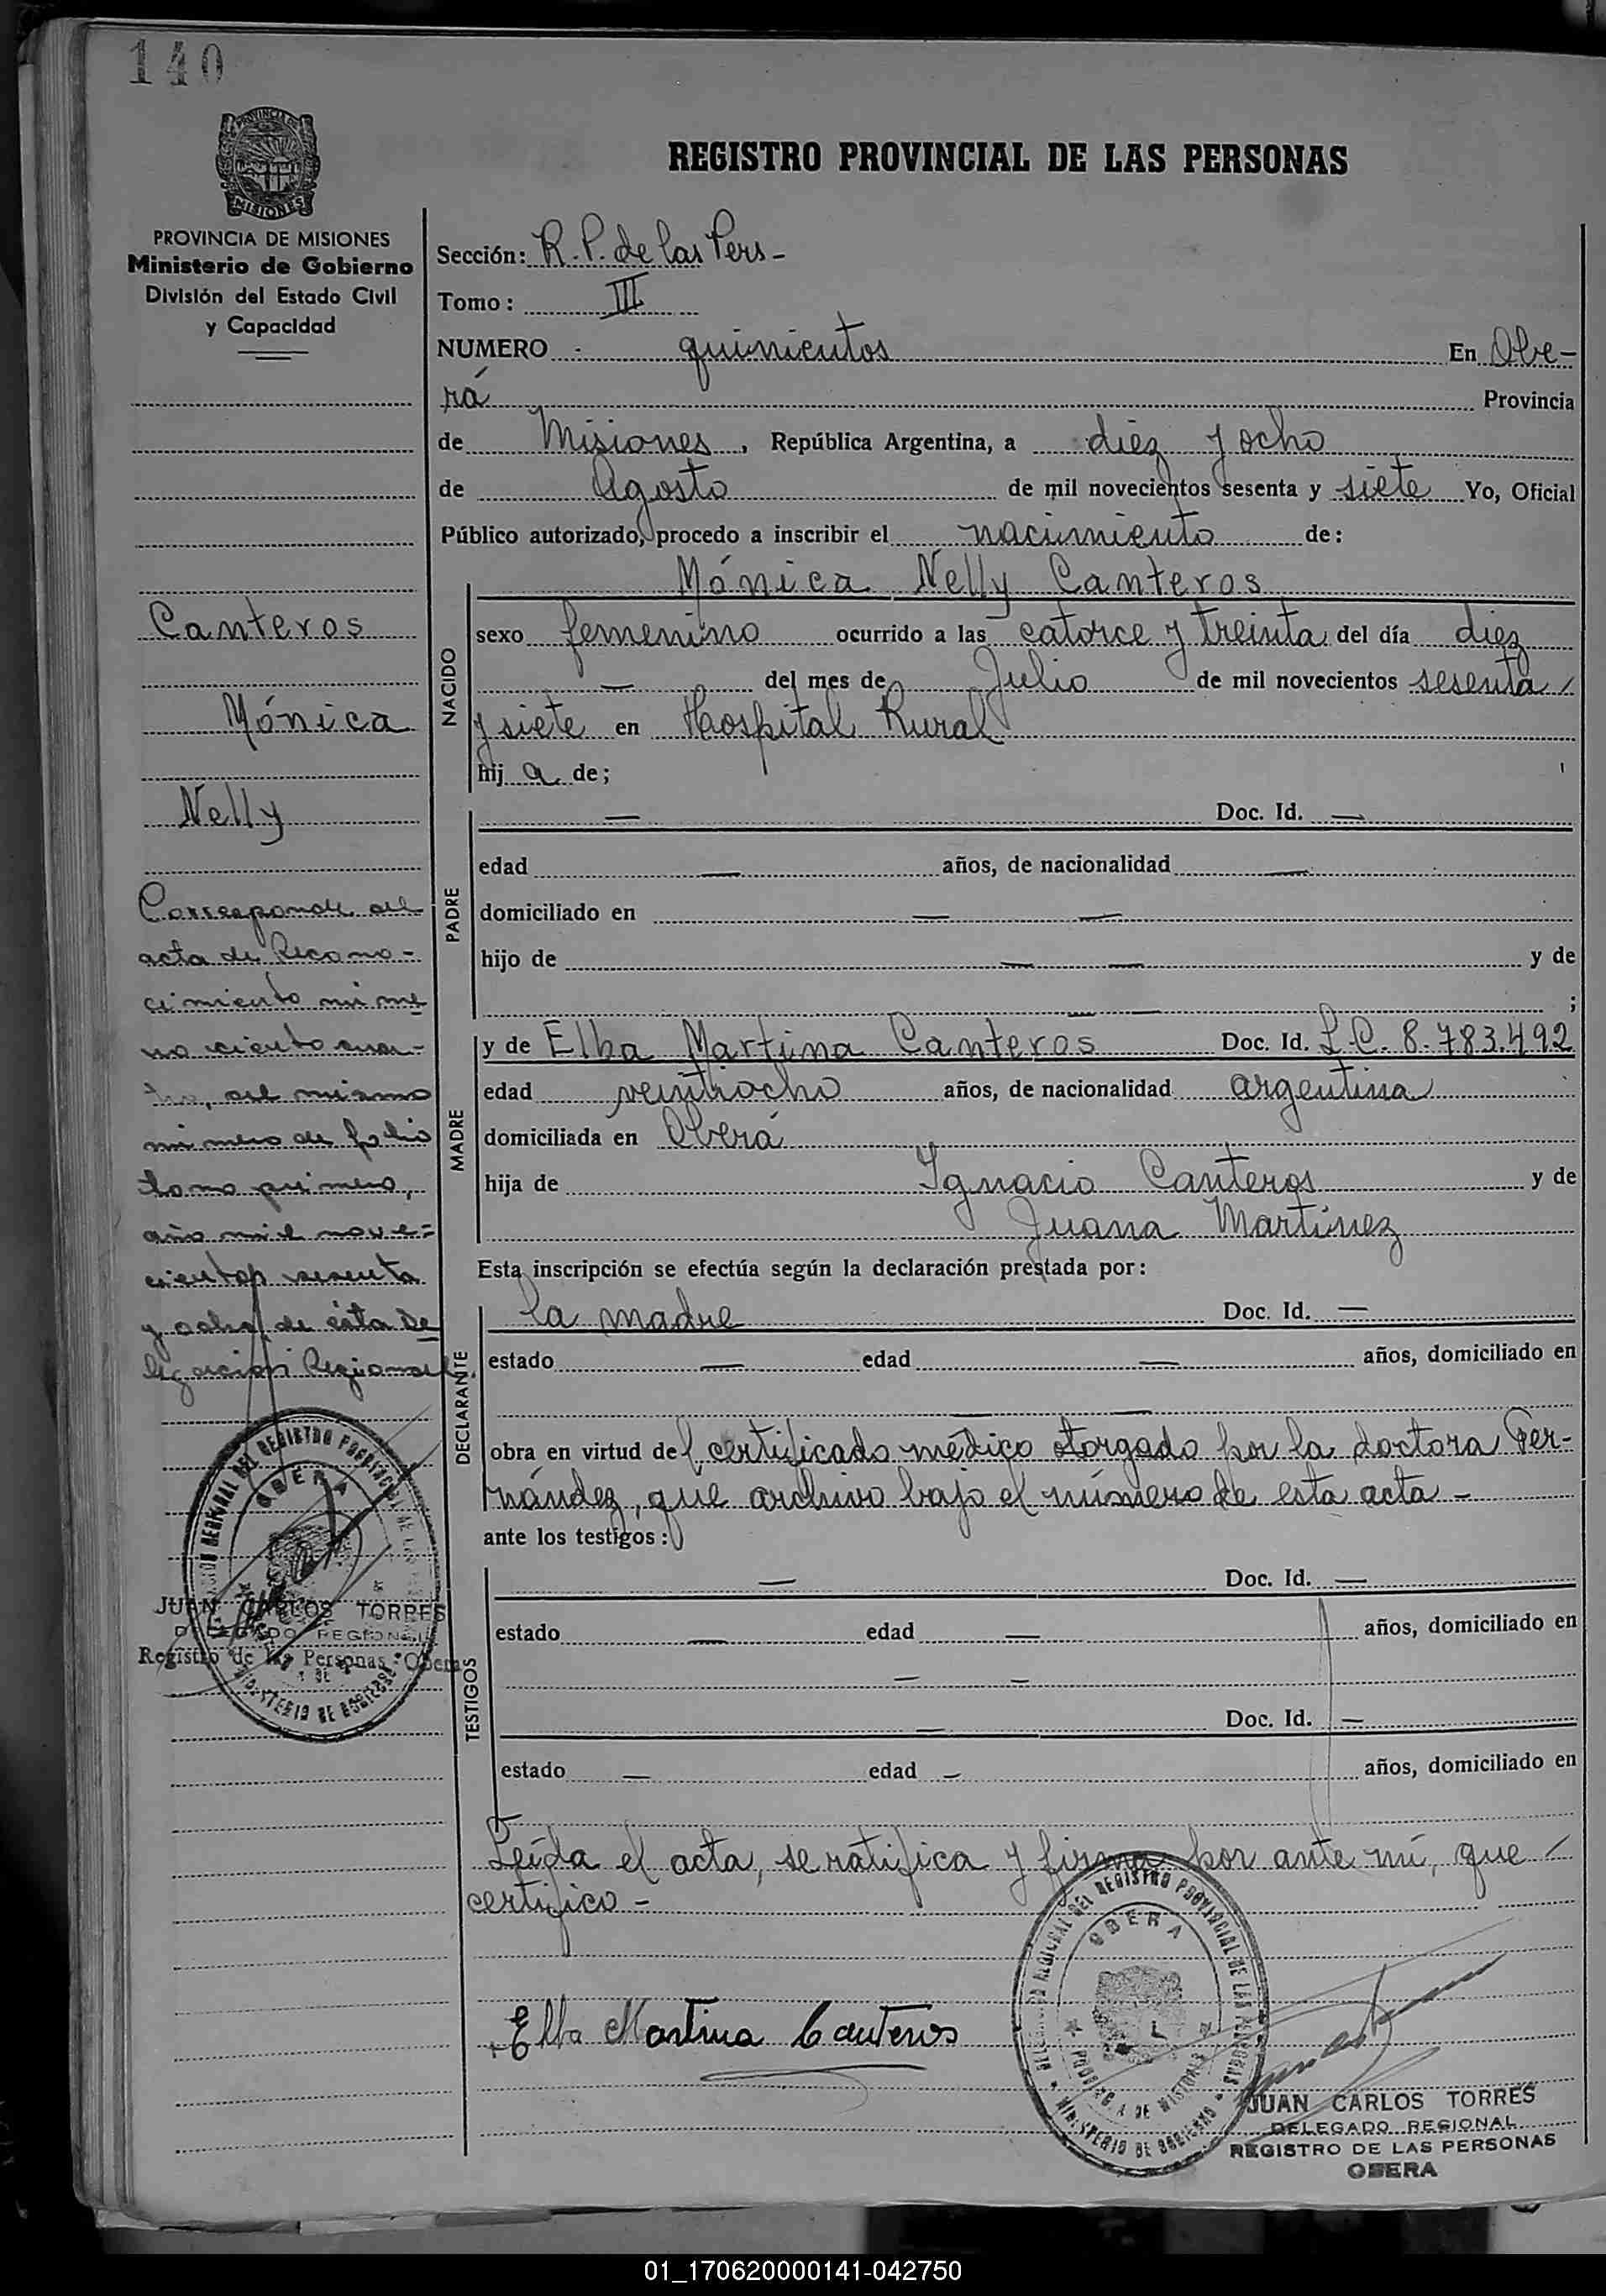 140
PROVINCIA DE MISIONES
MISIONES
PROVINCIA DE MISIONES
Ministerio de Gobierno
División del Estado Civil
y Capacidad
Canteros
Mónica
Nelly
Corresponde al
acta de Recono-
cimiento núme
ro ciento cua-
tro, del mismo
número de folio
tomo primero,
año mil nove-
cientos sesenta
y ocho, de ésta De
legación Regional.
OBERA
JUAN CARLOS TORRES
DELEGADO REGIONAL
Registro de las Personas - Obera
MINISTERIO DE GOBIERNO
REGISTRO PROVINCIAL DE LAS PERSONAS
Sección: R. P. de las Pers-
Tomo: III
NUMERO - quinientos En Obe-
rá Provincia
de Misiones, República Argentina, a diez y ocho
de Agosto de mil novecientos sesenta y siete Yo, Oficial
Público autorizado, procedo a inscribir el nacimiento de:
NACIDO
Mónica Nelly Canteros
sexo femenino ocurrido a las catorce y treinta del día diez
— del mes de Julio de mil novecientos sesenta
y siete en Hospital Rural
hij a de;
PADRE
— Doc. Id. —
edad — años, de nacionalidad —
domiciliado en — —
hijo de — — y de
— — ;
MADRE
y de Elba Martina Canteros Doc. Id. L.C. 8.783.492
edad veintiocho años, de nacionalidad argentina
domiciliada en Oberá
hija de Ignacio Canteros y de
Juana Martínez
Esta inscripción se efectúa según la declaración prestada por:
DECLARANTE
la madre Doc. Id. —
estado — edad — años, domiciliado en
— —
obra en virtud del certificado médico otorgado por la doctora Fer-
nández, que archivo bajo el número de esta acta -
ante los testigos:
TESTIGOS
— Doc. Id. —
estado — edad — años, domiciliado en
— —
— Doc. Id. —
estado — edad — años, domiciliado en
Leída el acta, se ratifica y firma por ante mí, que
certifico -
Elba Martina Canteros
DELEGACION REGIONAL DEL REGISTRO PROVINCIAL DE LAS PERSONAS
OBERA
PROVINCIA DE MISIONES
MINISTERIO DE GOBIERNO
JUAN CARLOS TORRES
DELEGADO REGIONAL
REGISTRO DE LAS PERSONAS
OBERA
01_170620000141-042750